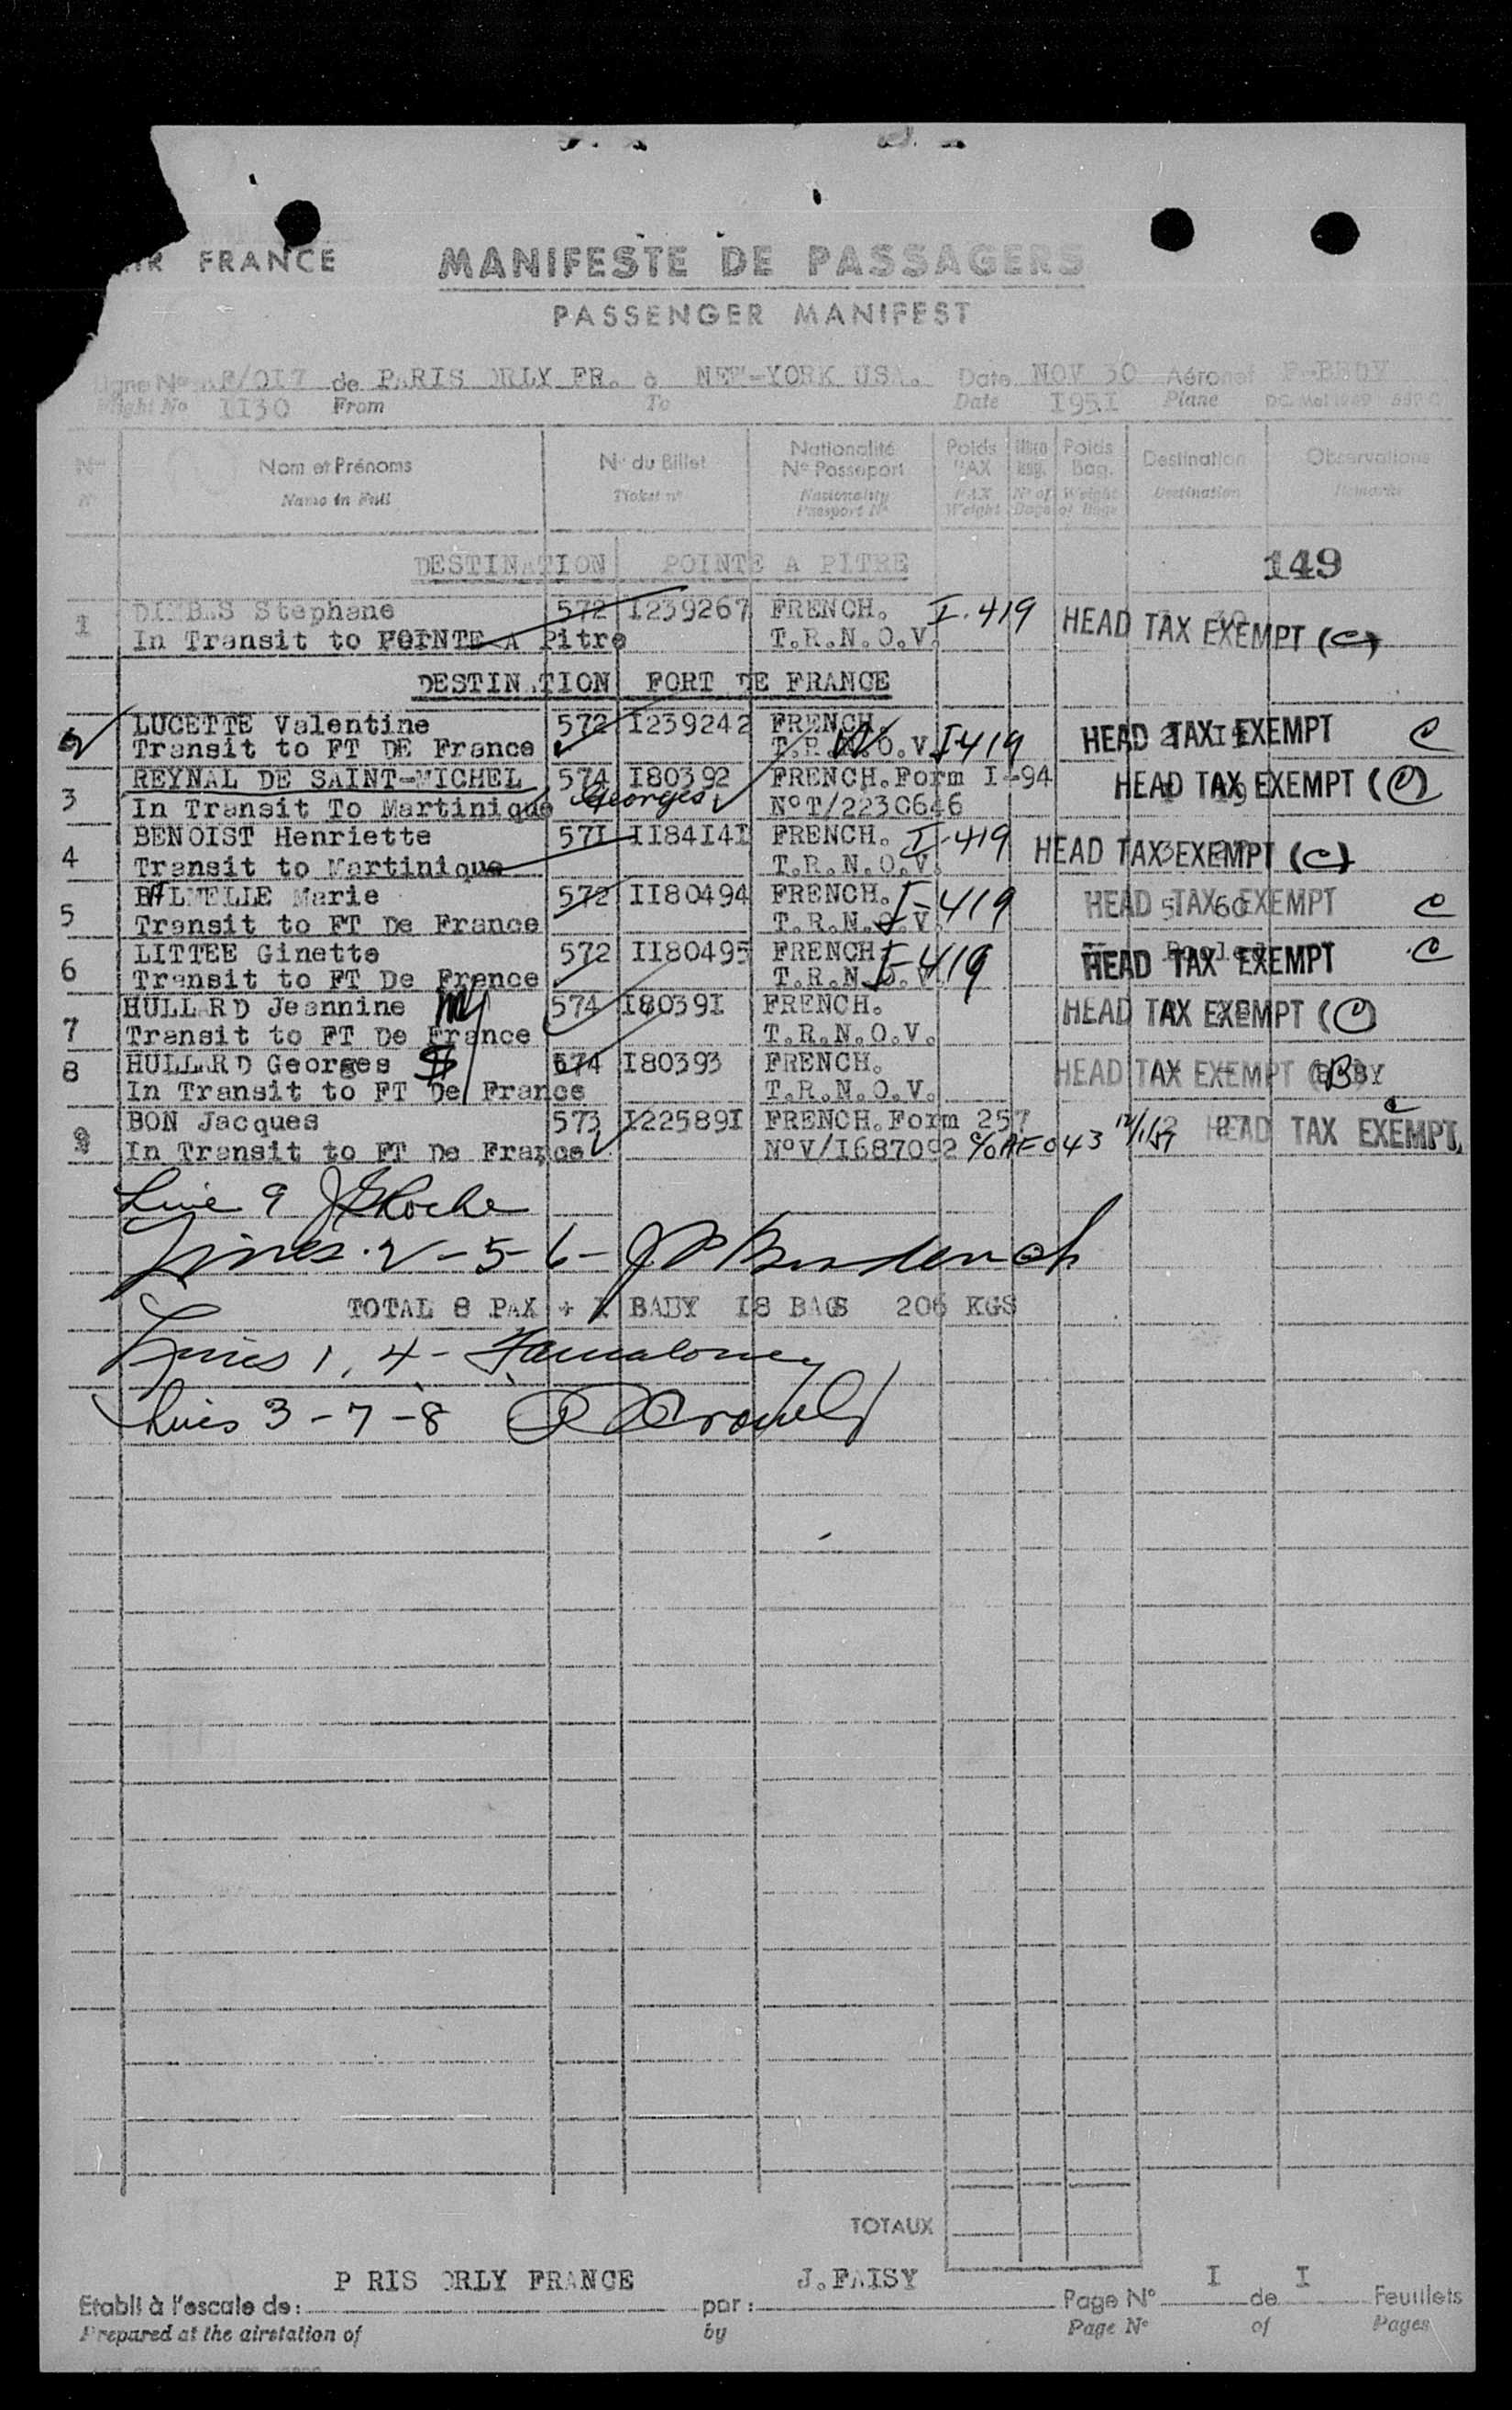 AIR FRANCE MANIFESTE DE PASSAGERS
PASSENGER MANIFEST
Ligne N° AF/017 de PARIS ORLY FR. à NEW-YORK USA. Date NOV 30 Aéronef
Flight No 1130 From To Date 1951 Plane
N° Nom et Prénoms N° du Billet Nationalité N° Passeport Poids PAX Nbre Bag. Poids Bag. Destination Observations
N° Name in Full Ticket n° Nationality Passport N° PAX Weight N° of Bags Weight of Bags Destination Remarks
DESTINATION POINTE A PITRE 149
1 Stephane 572 1239267 FRENCH. I-419 HEAD TAX EXEMPT (C)
In Transit to POINTE A Pitre T.R.N.O.V.
DESTINATION FORT DE FRANCE
2 LUCETTE Valentine 572 1239242 FRENCH HEAD TAX EXEMPT C
Transit to FT DE France T.R.N.O.V. I-419
3 REYNAL DE SAINT-MICHEL 574 180392 FRENCH.Form I-94 HEAD TAX EXEMPT (C)
In Transit To Martinique Georges N°T/2230646
4 BENOIST Henriette 571 1184141 FRENCH. I-419 HEAD TAX EXEMPT (C)
Transit to Martinique T.R.N.O.V.
5 Marie 572 1180494 FRENCH. I-419 HEAD TAX EXEMPT C
Transit to FT De France T.R.N.O.V.
6 LITTEE Ginette 572 1180495 FRENCH I-419 HEAD TAX EXEMPT C
Transit to FT De France T.R.N.O.V.
7 HULLARD Jeannine 574 180391 FRENCH. HEAD TAX EXEMPT (C)
Transit to FT De France T.R.N.O.V.
8 HULLARD Georges 574 180393 FRENCH. HEAD TAX EXEMPT BABY
In Transit to FT De France T.R.N.O.V.
9 BON Jacques 573 1225891 FRENCH.Form 257 12/1/51 HEAD TAX EXEMPT C
In Transit to FT De France N°V/1687092 AF 043
Line 9 Roche
Lines 2-5-6-
TOTAL 8 PAX + 1 BABY 18 BAGS 206 KGS
Lines 1, 4- Famaloney
Lines 3-7-8
TOTAUX
PARIS ORLY FRANCE J.FAISY I I
Etabli à l'escale de: par: Page N° de Feuillets
Prepared at the airstation of by Page N° of Pages